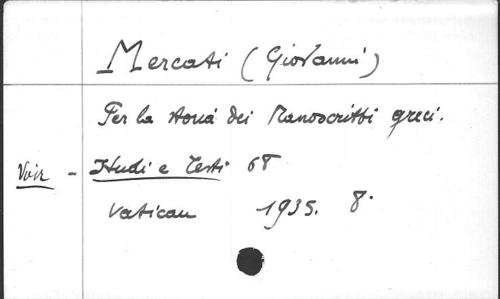 Mercati (Giovanni)
Per la storia dei Manoscritti greci.
Voir - Studi e Testi 68
Vatican 1935. 8°